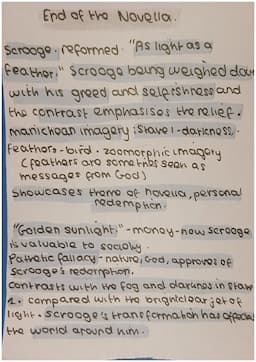 End of the Novella.
Scrooge reformed "As light as a
feather" Scrooge being weighed dow
with his greed and selfishness and
the contrast emphasises the relief.
manichean imagery: Stave 1 - darkness.
Feathers - bird - zoomorphic imagery
(feathers are sometimes seen as
messages from God)
Showcases theme of novella, personal
redemption.
"Golden sunlight" - money - now scrooge
is valuable to society
Pathetic fallacy - nature, God, approves of
Scrooge's redemption.
contrasts with the fog and darkness in Stave
1. compared with the bright clear jet of
light. Scrooge's transformation has affected
the world around him.